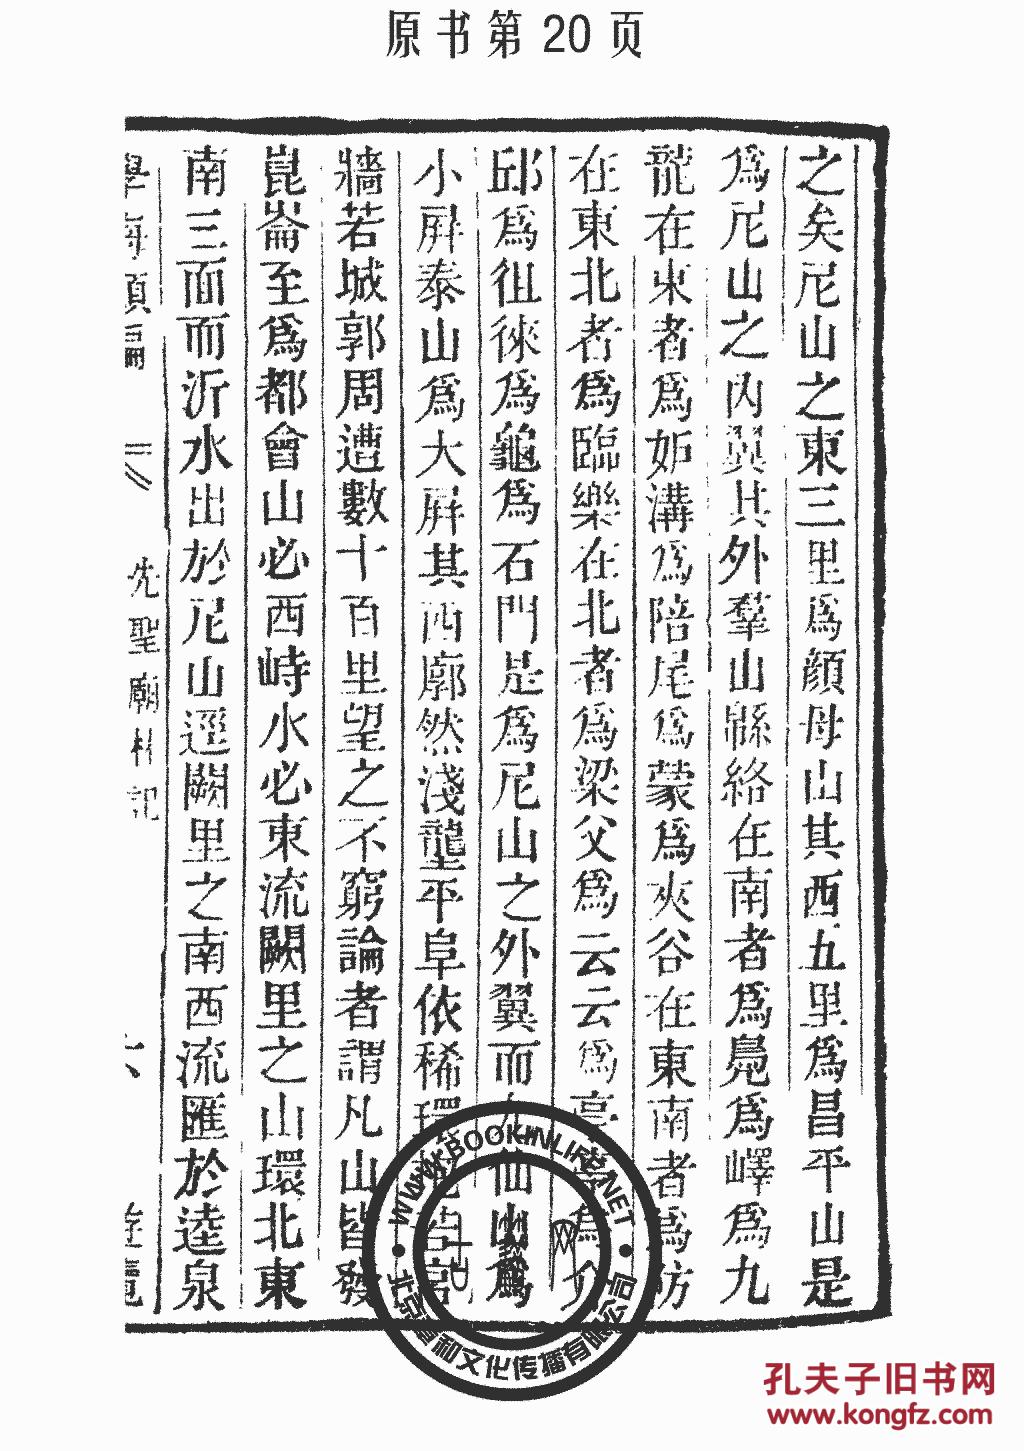 原书第20页
之矣尼山之東三里爲顔母山其西五里爲昌平山是
爲尼山之內翼其外羣山緜絡在南者爲鳧爲嶧爲九
龍在東者爲妬溝爲陪尾爲蒙爲夾谷在東南者爲防
在東北者爲臨樂在北者爲梁父爲云云爲亭
邱爲徂徠爲龜爲石門是爲尼山之外翼而
小屏泰山爲大屏其西廓然淺壟平阜依稀環
牆若城郭周遭數十百里望之不窮論者謂凡山皆發
崑崙至爲都會山必西峙水必東流闕里之山環北東
南三面而沂水出於尼山逕闕里之南西流匯於逵泉
先聖廟林記
WWW.BOOKINLIFE.NET
和文化传播有限公司
孔夫子旧书网
www.kongfz.com